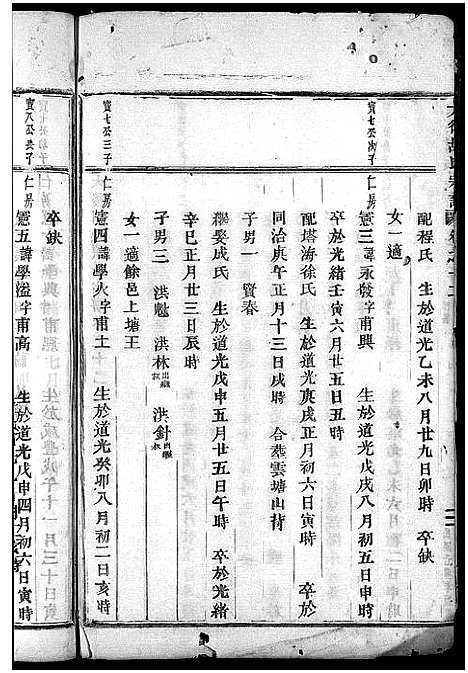 配程氏 生於道光乙未八月廿九日卯時 卒缺
女一適
寶七公次子 仁房
憲三諱永發字甫興 生於道光戊戌八月初五日申時
卒於光緒壬寅六月廿五日丑時
配塔海徐氏 生於道光庚戌正月初六日寅時 卒於
同治庚午正月十三日戌時 合葬雲塘山背
子男一 賢春
繼娶成氏 生於道光戊申五月廿五日午時 卒於光緒
辛巳正月廿三日辰時
子男三 洪魁 洪林出繼 洪針出繼
女一適餘邑上塘王
寶七公三子 仁房
憲四諱學火字甫土 生於道光癸卯八月初二日亥時
卒缺
寶八公長子 仁房
憲五諱學溢字甫高 生於道光戊申四月初六日寅時